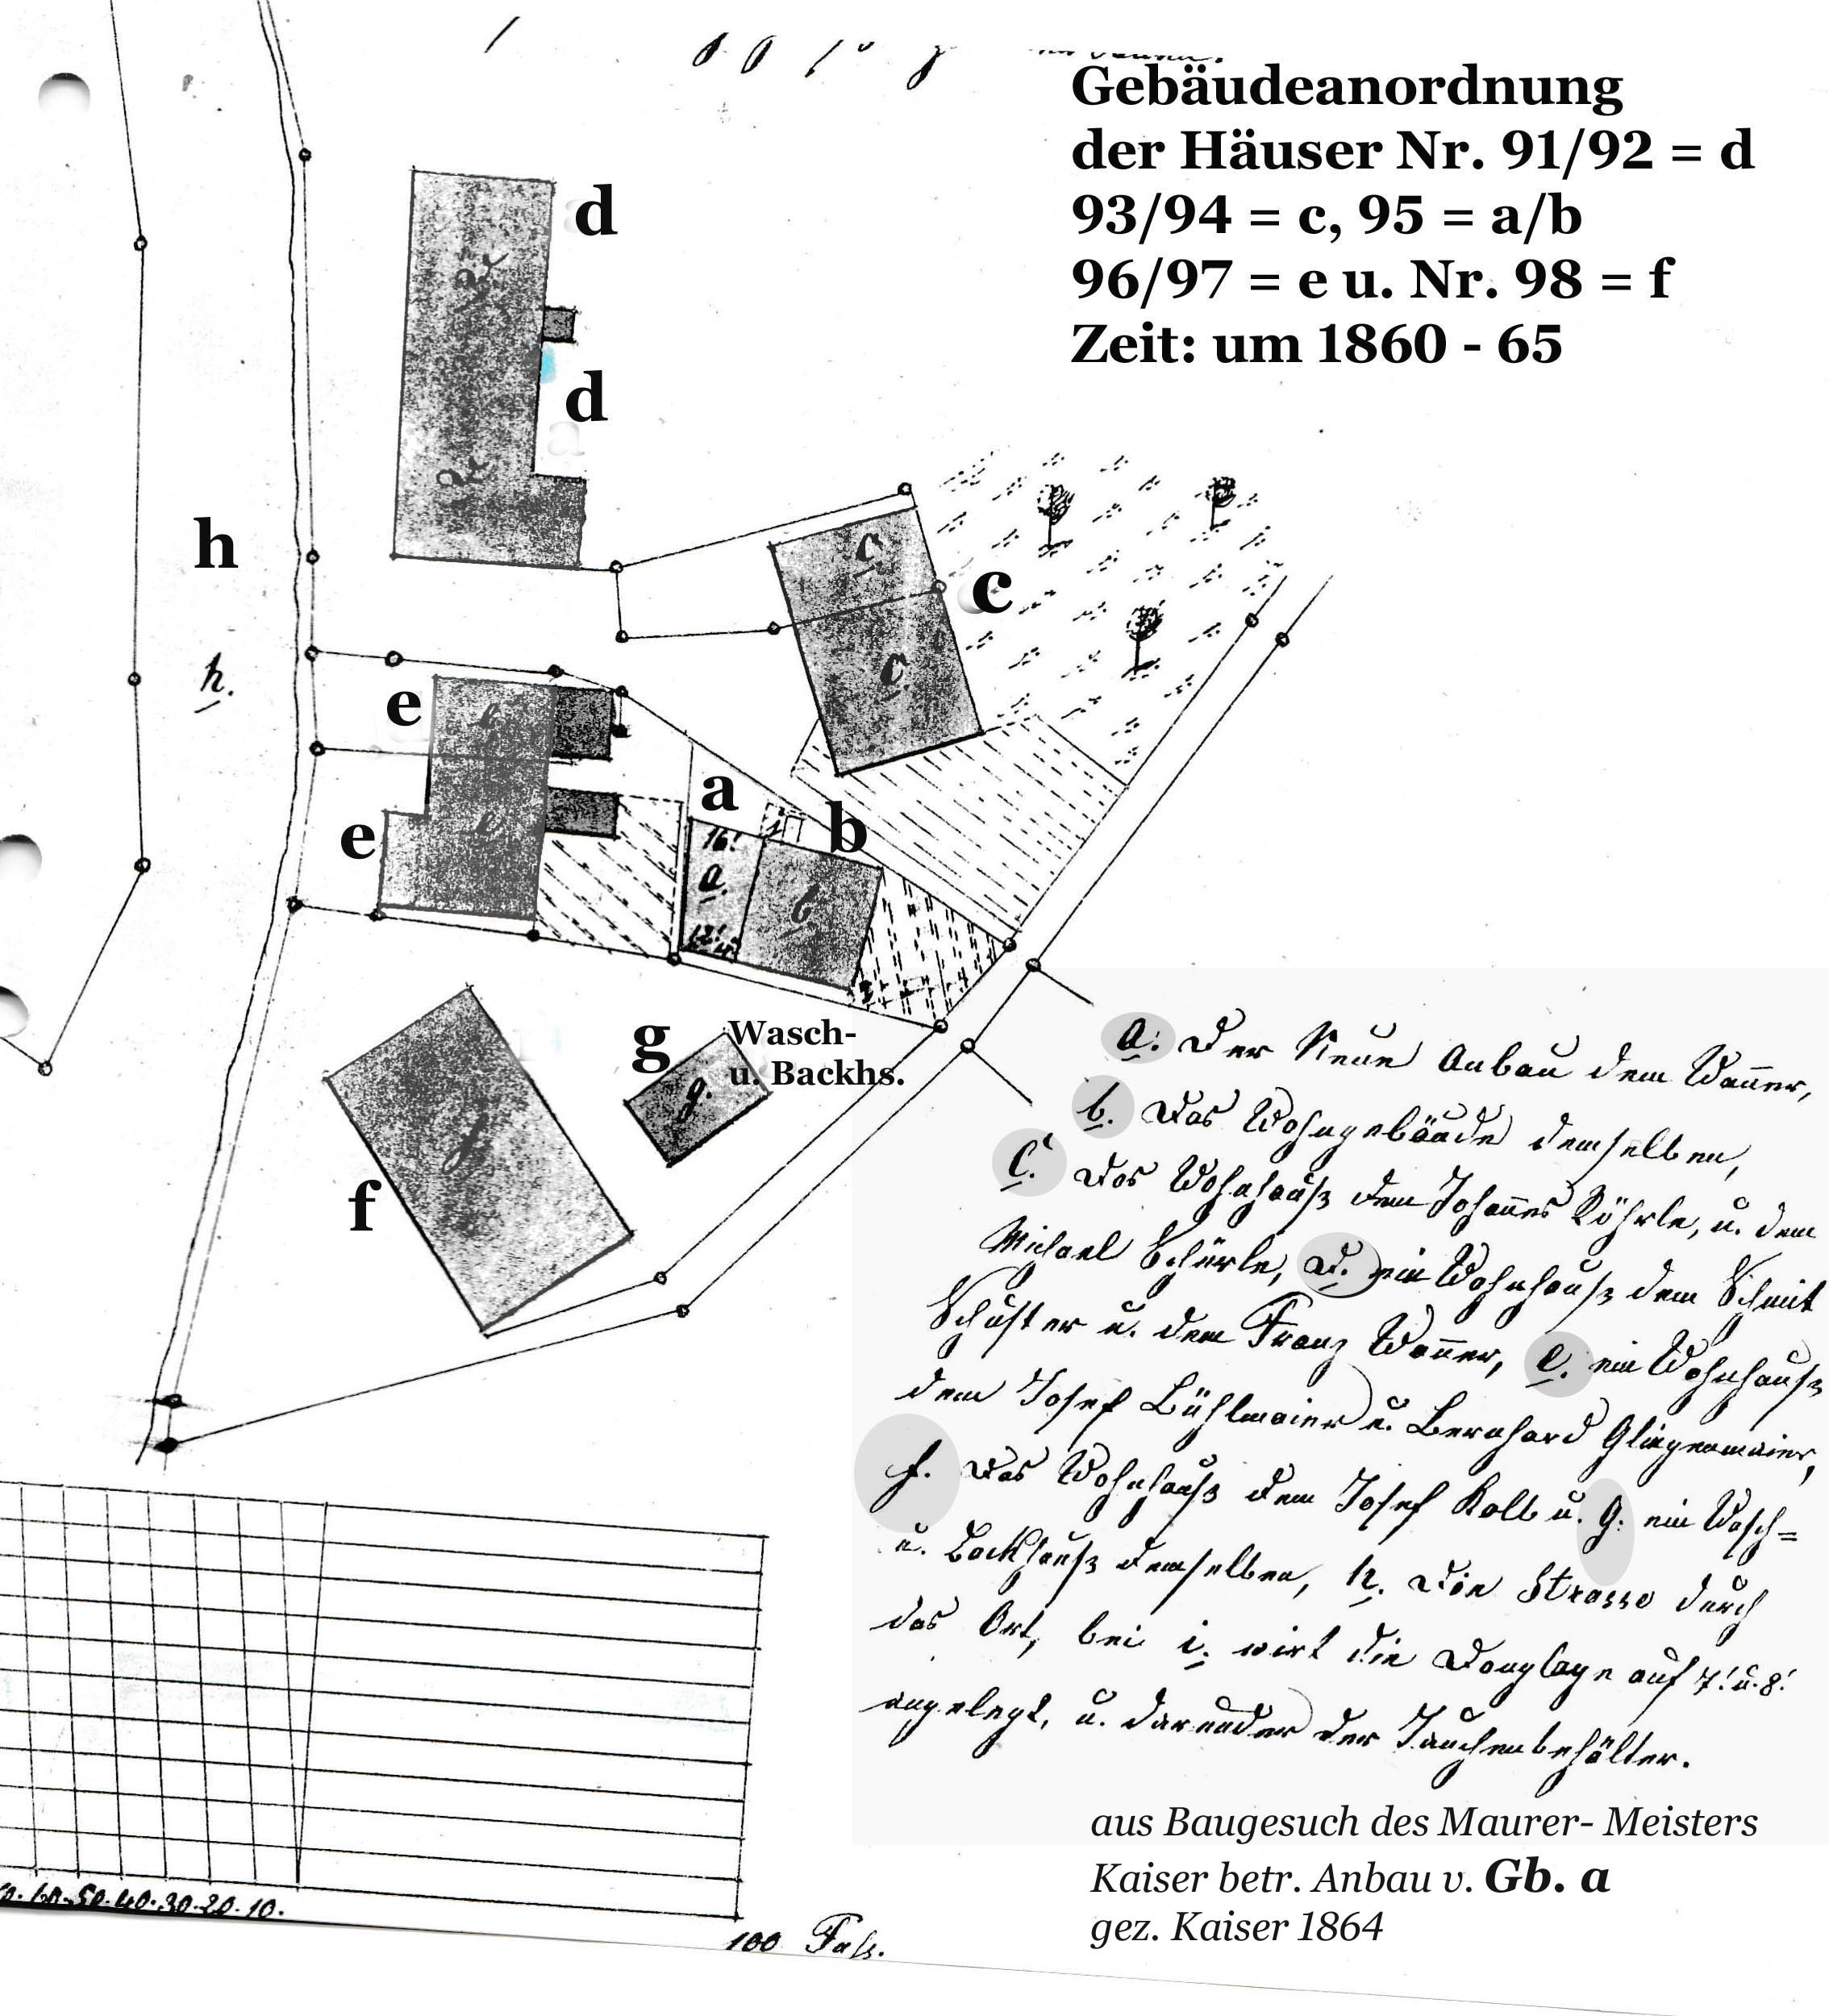 Gebäudeanordnung
der Häuser Nr. 91/92 = d
93/94 = c, 95 = a/b
96/97 = e u. Nr. 98 = f
Zeit: um 1860 - 65
d
d
h
h.
c
c
c.
e
e
e
a
b
16!
a.
b
12!
f
f
g
g.
Wasch-
u. Backhs.
a. Der Neue Anbau dem Wan̄er,
b. Das Wohngebäude demselben,
C. Das Wohnhauß dem Johan̄es Röhrle, u. dem
Michael Schürle, D. ein Wohnhauß dem Schmit
Schuster u. dem Franz Wan̄er, e. ein Wohnhauß
dem Josef Bühlmaier u. Bernhard
f. Das Wohnhauß dem Josef Kolb u. g: ein Wasch=
u. Backhauß demselben, h. Die Strasse durch
das Ort, bei i. wirt die Dunglage auf 7! u. 8!
angelegt, u. darunder der Jauchenbehälter.
aus Baugesuch des Maurer- Meisters
Kaiser betr. Anbau v. Gb. a
gez. Kaiser 1864
60. 50. 40. 30. 20. 10.
100 Fuß.